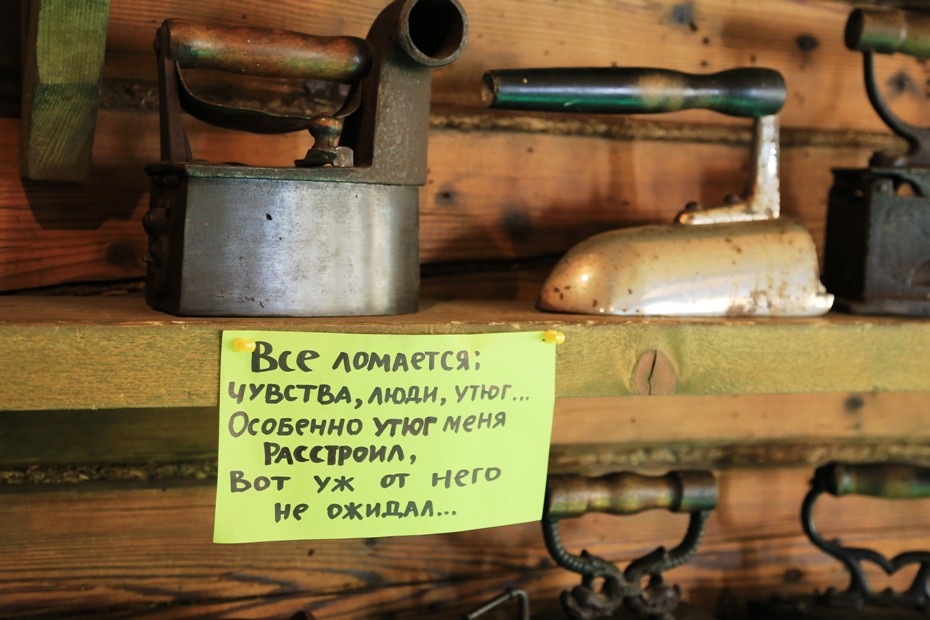 Все ломается:
чувства, люди, утюг...
Особенно утюг меня
расстроил,
Вот уж от него
не ожидал...